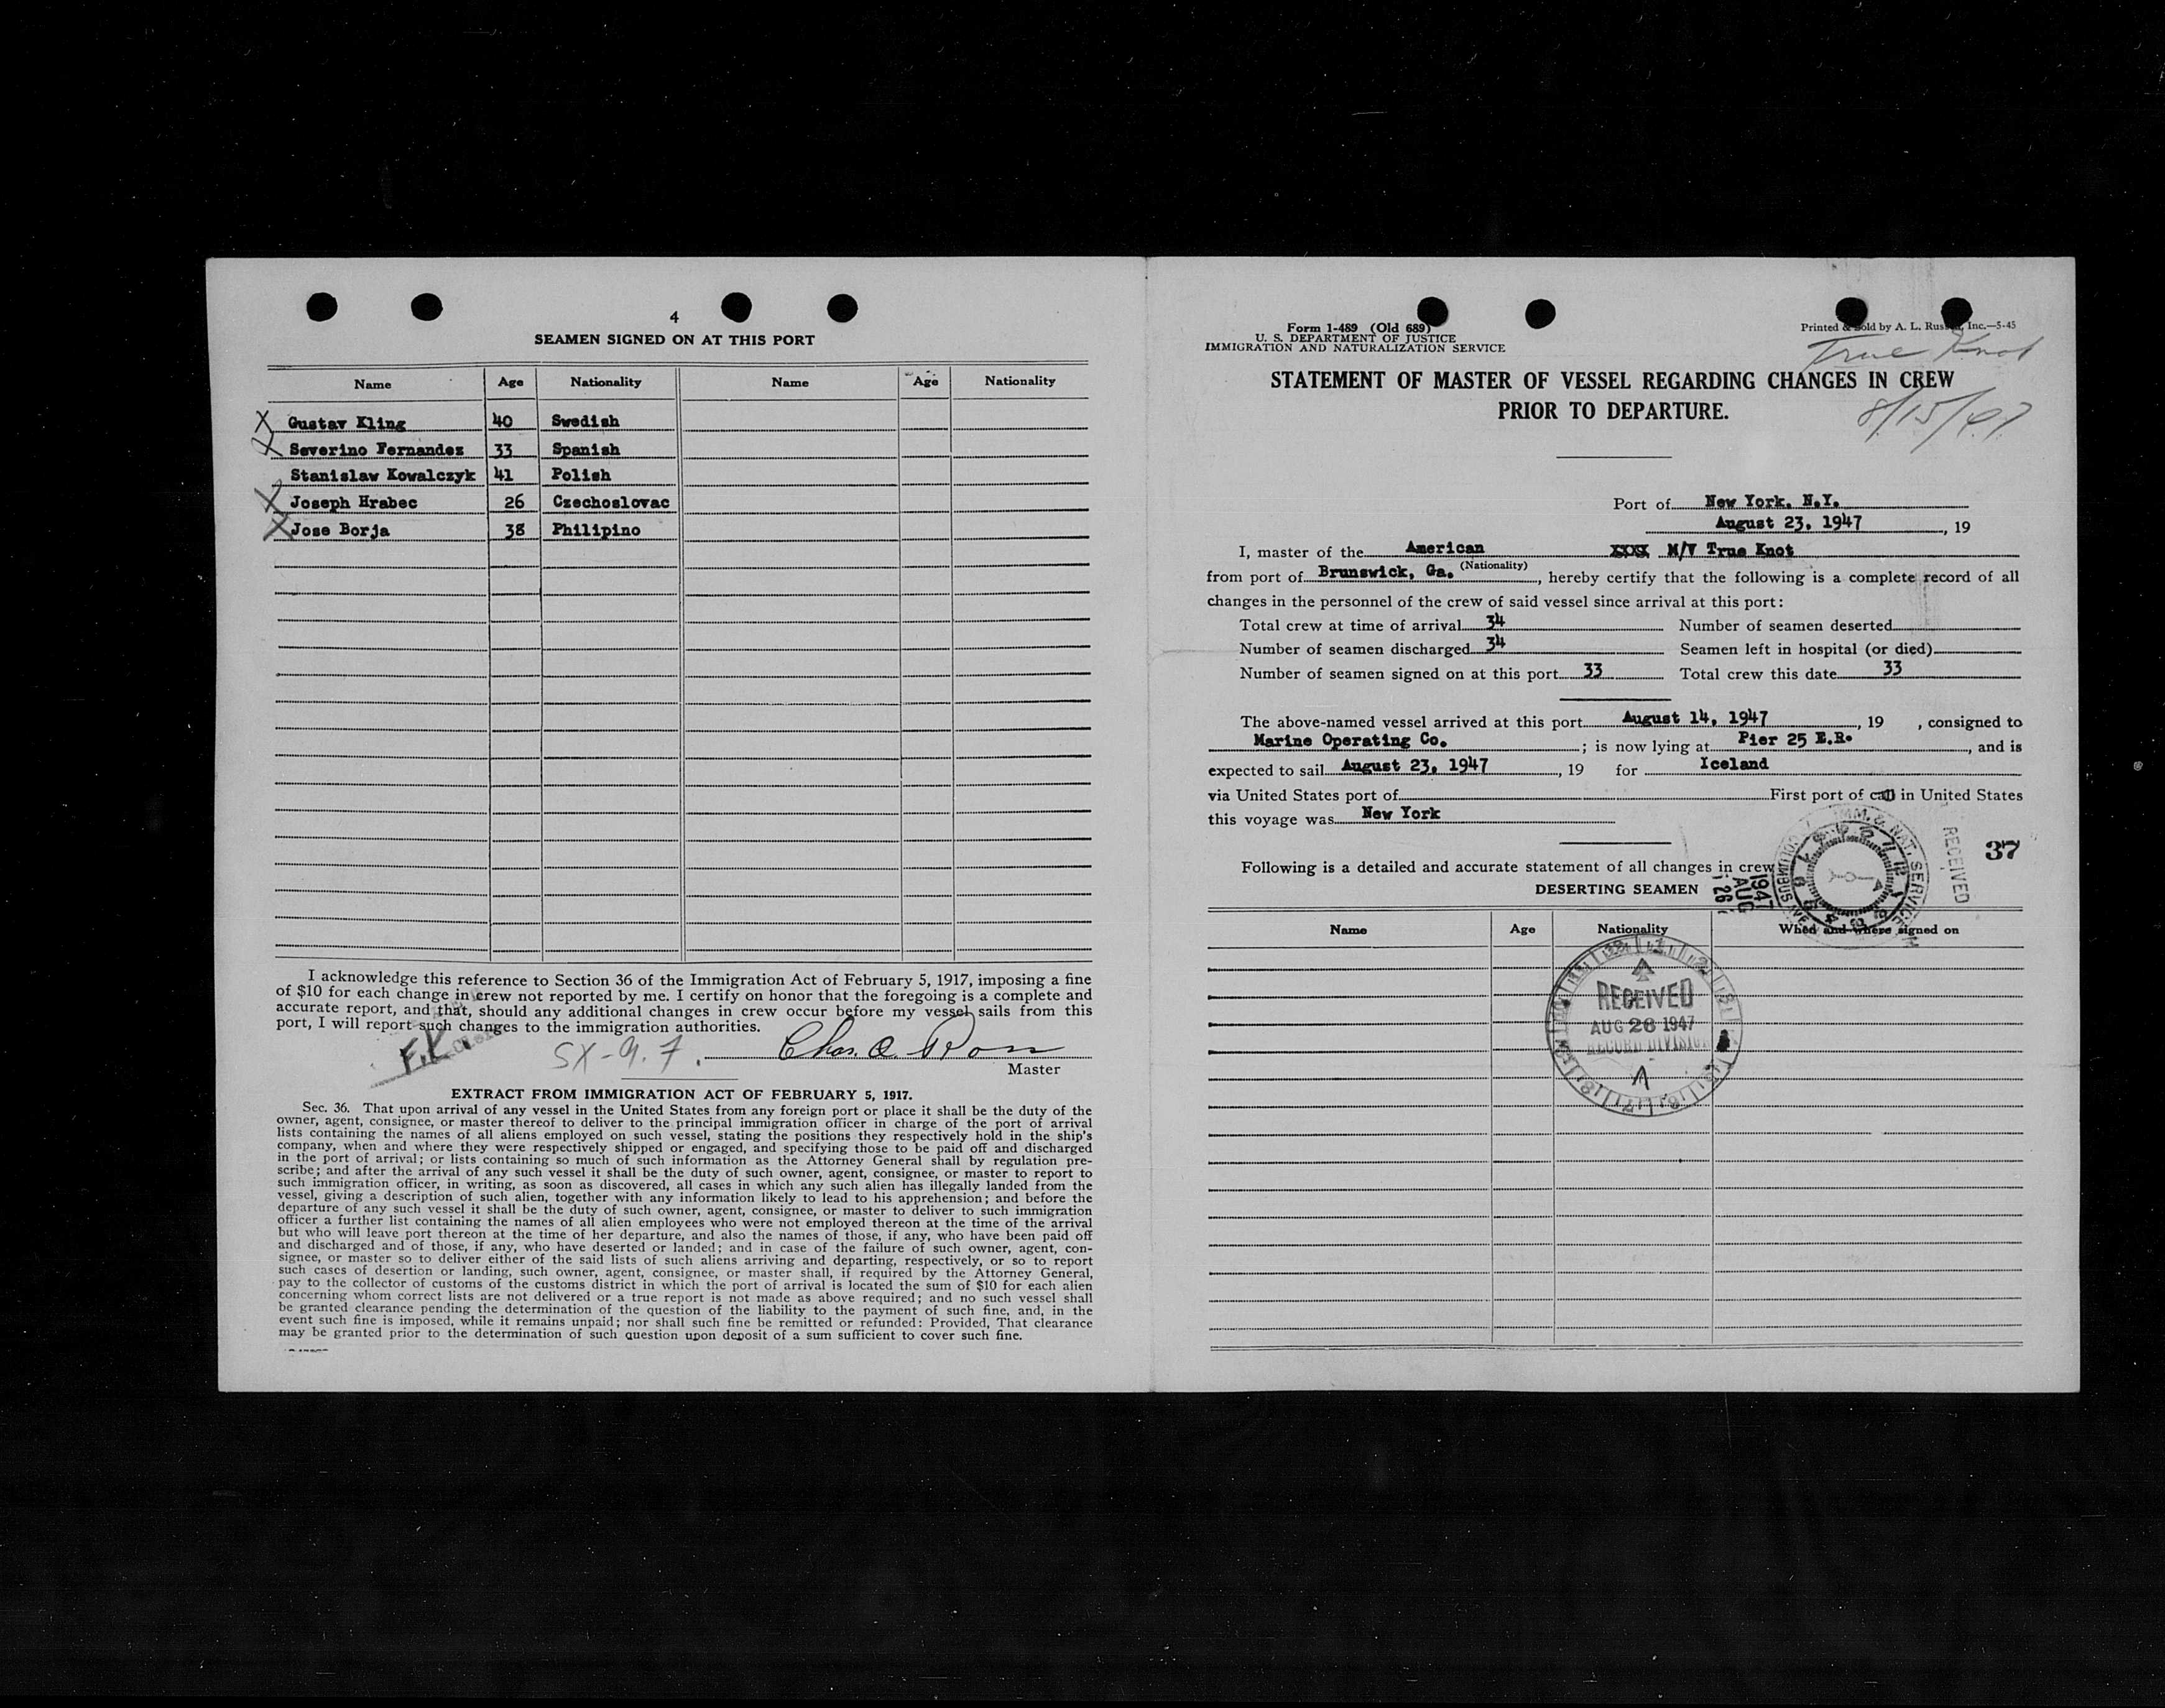 4
SEAMEN SIGNED ON AT THIS PORT
Name Age Nationality Name Age Nationality
X Gustav Kling 40 Swedish
X Severino Fernandez 33 Spanish
Stanislaw Kowalczyk 41 Polish
X Joseph Hrabec 26 Czechoslovac
X Jose Borja 38 Philipino
I acknowledge this reference to Section 36 of the Immigration Act of February 5, 1917, imposing a fine
of $10 for each change in crew not reported by me. I certify on honor that the foregoing is a complete and
accurate report, and that, should any additional changes in crew occur before my vessel sails from this
port, I will report such changes to the immigration authorities.
F.K. SX-9.7. Chas. A. Ross
Master
EXTRACT FROM IMMIGRATION ACT OF FEBRUARY 5, 1917.
Sec. 36. That upon arrival of any vessel in the United States from any foreign port or place it shall be the duty of the
owner, agent, consignee, or master thereof to deliver to the principal immigration officer in charge of the port of arrival
lists containing the names of all aliens employed on such vessel, stating the positions they respectively hold in the ship's
company, when and where they were respectively shipped or engaged, and specifying those to be paid off and discharged
in the port of arrival; or lists containing so much of such information as the Attorney General shall by regulation pre-
scribe; and after the arrival of any such vessel it shall be the duty of such owner, agent, consignee, or master to report to
such immigration officer, in writing, as soon as discovered, all cases in which any such alien has illegally landed from the
vessel, giving a description of such alien, together with any information likely to lead to his apprehension; and before the
departure of any such vessel it shall be the duty of such owner, agent, consignee, or master to deliver to such immigration
officer a further list containing the names of all alien employees who were not employed thereon at the time of the arrival
but who will leave port thereon at the time of her departure, and also the names of those, if any, who have been paid off
and discharged and of those, if any, who have deserted or landed; and in case of the failure of such owner, agent, con-
signee, or master so to deliver either of the said lists of such aliens arriving and departing, respectively, or so to report
such cases of desertion or landing, such owner, agent, consignee, or master shall, if required by the Attorney General,
pay to the collector of customs of the customs district in which the port of arrival is located the sum of $10 for each alien
concerning whom correct lists are not delivered or a true report is not made as above required; and no such vessel shall
be granted clearance pending the determination of the question of the liability to the payment of such fine, and, in the
event such fine is imposed, while it remains unpaid; nor shall such fine be remitted or refunded: Provided, That clearance
may be granted prior to the determination of such question upon deposit of a sum sufficient to cover such fine.
Form 1-489 (Old 689)
U. S. DEPARTMENT OF JUSTICE
IMMIGRATION AND NATURALIZATION SERVICE
Printed & Sold by A. L. Russell, Inc.—5-45
True Knot
STATEMENT OF MASTER OF VESSEL REGARDING CHANGES IN CREW
PRIOR TO DEPARTURE.
8/15/47
Port of New York, N.Y.
August 23, 1947, 19
I, master of the American XXXX M/V True Knot
(Nationality)
from port of Brunswick, Ga., hereby certify that the following is a complete record of all
changes in the personnel of the crew of said vessel since arrival at this port:
Total crew at time of arrival 34 Number of seamen deserted
Number of seamen discharged 34 Seamen left in hospital (or died)
Number of seamen signed on at this port 33 Total crew this date 33
The above-named vessel arrived at this port August 14, 1947, 19 , consigned to
Marine Operating Co. ; is now lying at Pier 25 E.R. , and is
expected to sail August 23, 1947, 19 for Iceland
via United States port of First port of call in United States
this voyage was New York
RECEIVED
37
IMM. & NAT. SERVICE
COLUMBUS AVE
1947 AUG 26
Following is a detailed and accurate statement of all changes in crew
DESERTING SEAMEN
Name Age Nationality When and where signed on
RECEIVED
AUG 26 1947
RECORD DIVISION